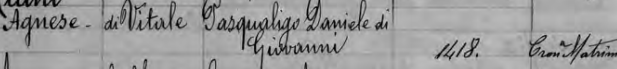 Agnese - di Vitale Pasqualigo Daniele di
Giovanni 1418. Cron. Matrim